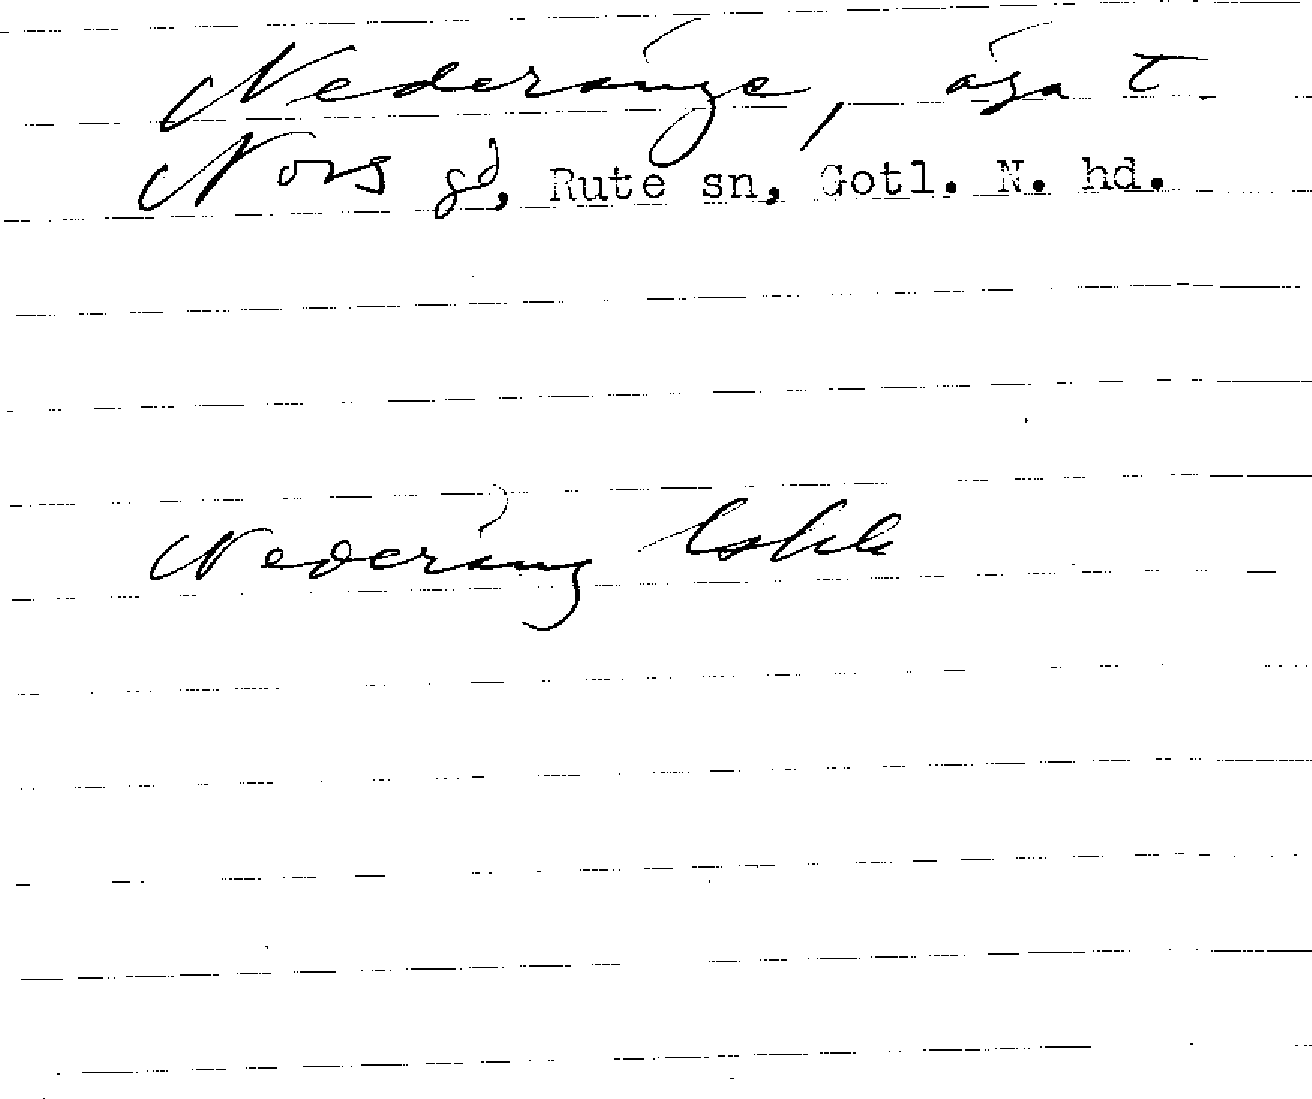 Nederänge, äga t
Nors gd, Rute sn, Gotl. N. hd.
Nederäng